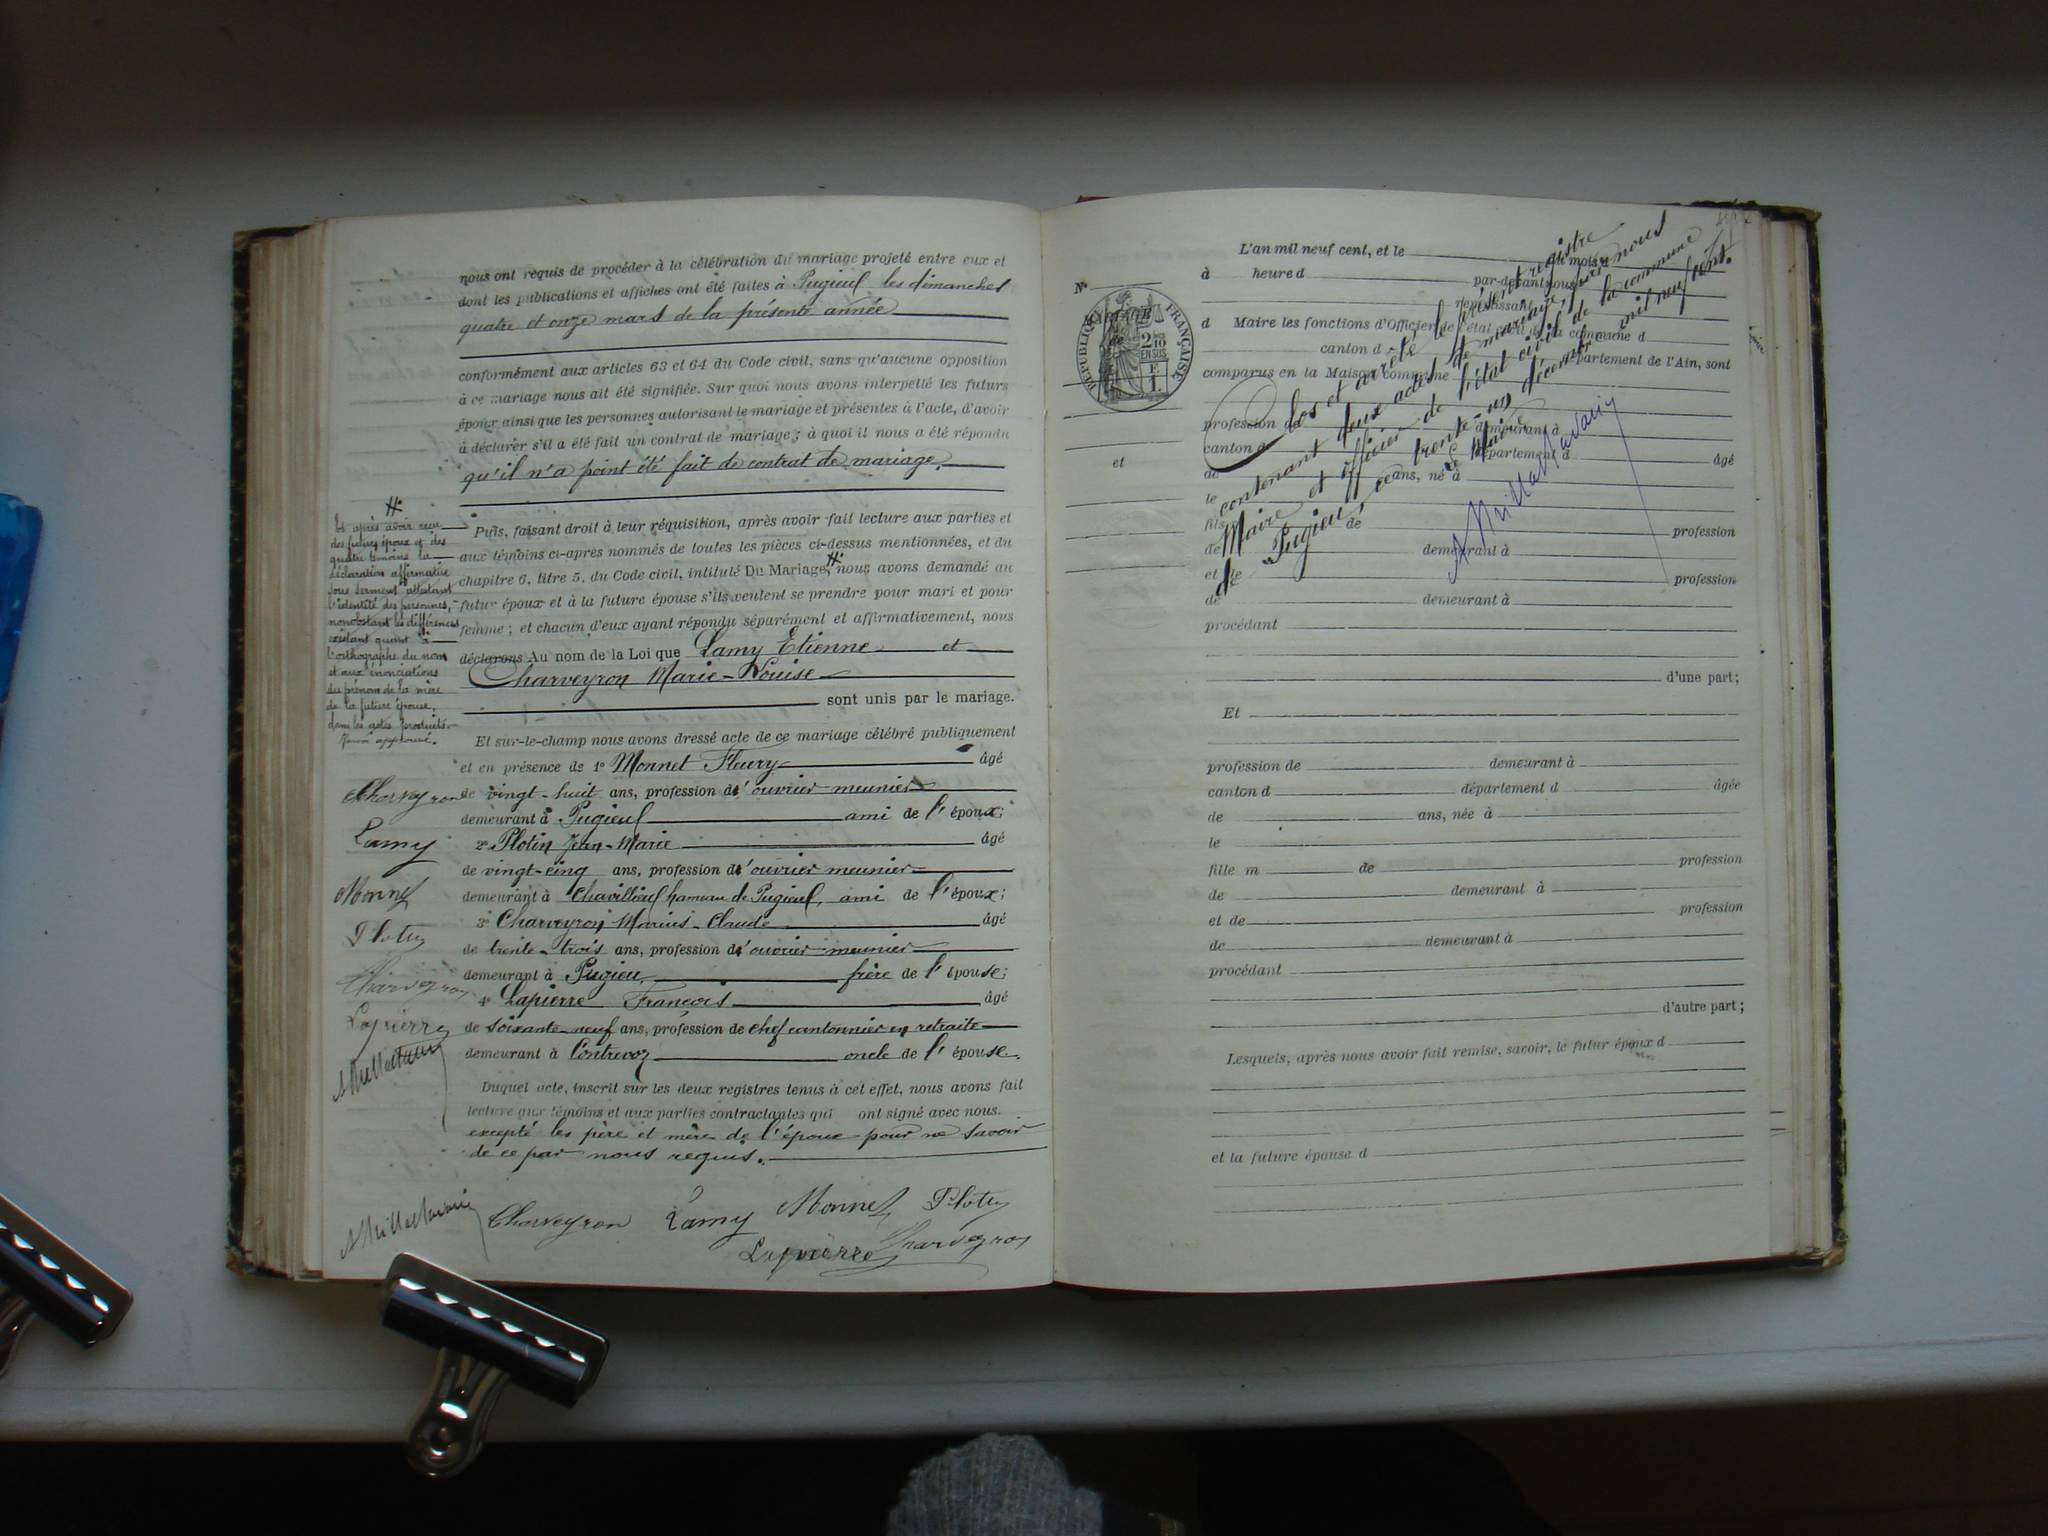 nous ont requis de procéder à la célébration du mariage projeté entre eux et
dont les publications et affiches ont été faites à Pugieu les dimanches
quatre et onze mars de la présente année
conformément aux articles 63 et 64 du Code civil, sans qu'aucune opposition
à ce mariage nous ait été signifiée. Sur quoi nous avons interpellé les futurs
époux ainsi que les personnes autorisant le mariage et présentes à l'acte, d'avoir
à déclarer s'il a été fait un contrat de mariage ; à quoi il nous a été répondu
qu'il n'a point été fait de contrat de mariage.
Puis, faisant droit à leur réquisition, après avoir fait lecture aux parties et
aux témoins ci-après nommés de toutes les pièces ci-dessus mentionnées, et du
chapitre 6, titre 5, du Code civil, intitulé Du Mariage, nous avons demandé au
futur époux et à la future épouse s'ils veulent se prendre pour mari et pour
femme ; et chacun d'eux ayant répondu séparément et affirmativement, nous
déclarons Au nom de la Loi que Lamy Etienne et
Charveyron Marie-Louise
sont unis par le mariage.
Et après avoir reçu
des futurs époux et des
quatre témoins la
déclaration affirmative
sous serment attestant
l'identité des personnes,
nonobstant les différences
existant quant à
l'orthographe du nom
et aux énonciations
du prénom de la mère
de la future épouse,
dans les actes produits.
Renvoi approuvé.
Et sur-le-champ nous avons dressé acte de ce mariage célébré publiquement
et en présence de 1° Monnet Fleury âgé
de vingt-huit ans, profession d'ouvrier meunier
demeurant à Pugieu ami de l'époux;
2° Plotin Jean-Marie âgé
de vingt-cinq ans, profession d'ouvrier meunier
demeurant à Chavillieu hameau de Pugieu, ami de l'époux;
3° Charveyron Marius-Claude âgé
de trente-trois ans, profession d'ouvrier meunier
demeurant à Pugieu, frère de l'épouse;
4° Lapierre François âgé
de soixante-neuf ans, profession de chef cantonnier en retraite
demeurant à Contrevoz oncle de l'épouse.
Duquel acte, inscrit sur les deux registres tenus à cet effet, nous avons fait
lecture aux témoins et aux parties contractantes qui ont signé avec nous.
excepté les père et mère de l'époux pour ne savoir
de ce par nous requis.
Charveyron
Lamy
Monnet
Plotin
Charveyron
Lapierre
Charveyron Lamy Monnet Plotin
Lapierre Charveyron
N°
RÉPUBLIQUE FRANÇAISE
2/10 EN SUS
F
1.
et
L'an mil neuf cent, et le du mois d
à heure d par-devant nous
remplissant
d Maire les fonctions d'Officier de l'état civil de la commune d
canton d département de l'Ain, sont
comparus en la Maison commune
profession de demeurant à
canton d département d âgé
de ans, né à
le
fils de profession
de demeurant à
et de profession
de demeurant à
procédant
d'une part;
Clos et arrêté le présent registre
contenant deux actes de mariage, par nous
Maire et officier de l'état civil de la commune
de Pugieu, ce trente-un décembre mil neuf cent.
Le Maire
Et
profession de demeurant à
canton d département d âgée
de ans, née à
le
fille m de profession
de demeurant à
et de profession
de demeurant à
procédant
d'autre part;
Lesquels, après nous avoir fait remise, savoir, le futur époux d
et la future épouse d